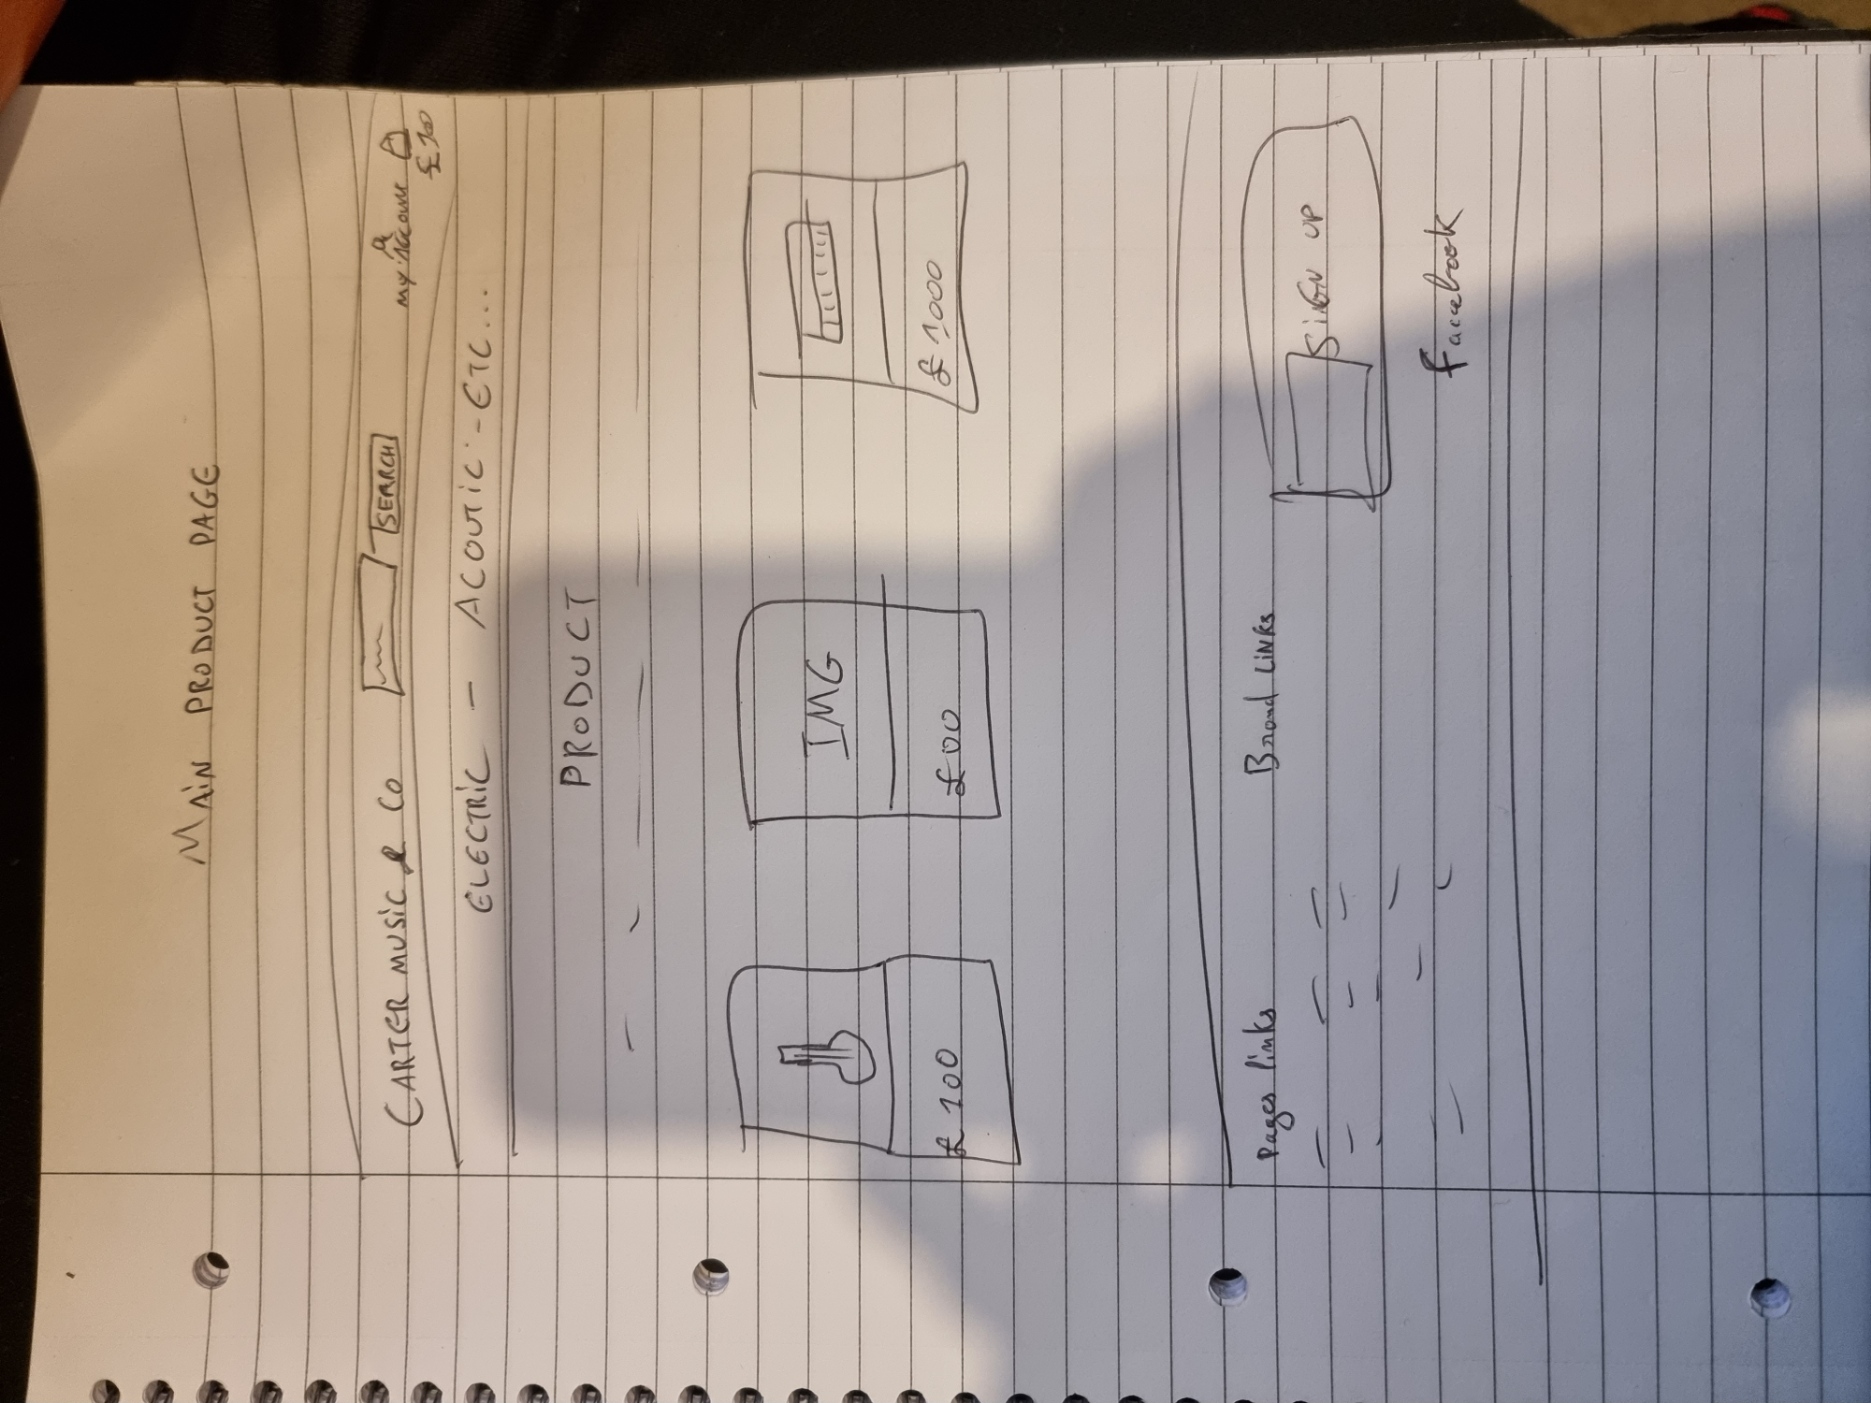 MAIN PRODUCT PAGE
CARTER MUSIC & CO SEARCH My Account
£100
ELECTRIC - ACOUTIC - ETC...
PRODUCT
IMG
£ 100 £00 £ 1000
Pages links Brand LINKS
SIGN UP
Facebook